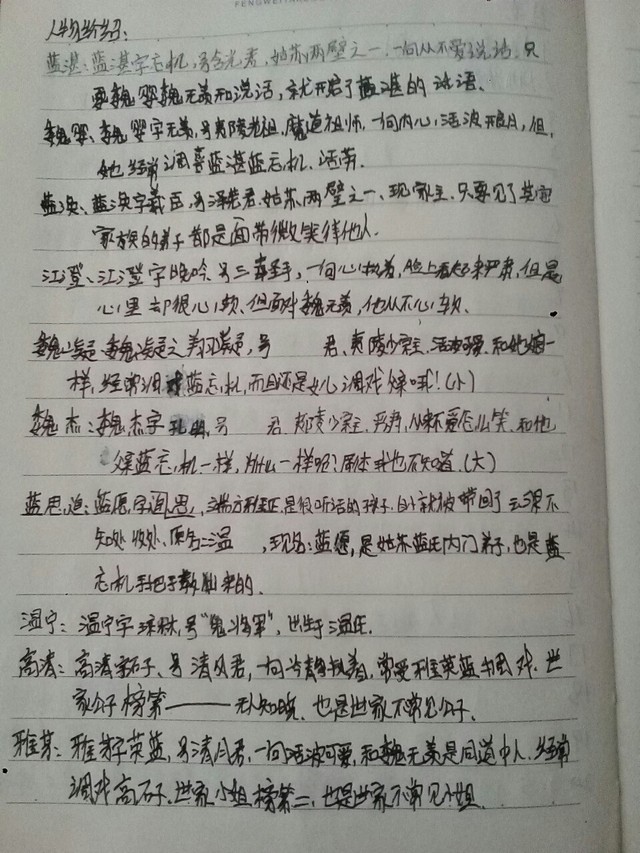 FENGWEI
人物介绍：
蓝湛：蓝湛字忘机，号含光君，姑苏两壁之一，一向从不爱说话，只
要魏婴魏无羡和说话，就开启了蓝湛的说话。
魏婴、魏婴字无羡，号夷陵老祖，魔道祖师，一向内心活波开朗，但，
她经常调喜蓝湛蓝忘机、话劳.
蓝涣、蓝涣字羲臣，号泽芜君，姑苏两壁之一、现家主，只要见了其它
家族的弟子都是面带微笑待他人.
江澄、江澄字晚吟，号三毒圣手，一向心执着，脸上看起来严肃，但是
心里却很心软、但面对魏无羡，他从不心软、
魏凝 魏凝之 翔羽凝，号 君、夷陵少家主、活波可爱、和她娘一
样，经常调戏蓝忘机，而且还是女儿调戏 哦！（小）
魏杰：魏杰字孔明，号 君、夷陵少家主、严肃，从来不爱怎么笑、和他
父亲蓝忘机一样，为什么一样呢？具体我也不知道.（大）
蓝思追：蓝愿，字涧思，端方雅正，是很听话的孩子，自小就被带回了云深不
知处收处、原名：温 ，现名：蓝愿，是姑苏蓝氏内门弟子，也是蓝
忘机手把手教出来的.
温宁：温宁字琼林，号“鬼将军”，出生于温氏.
高清：高清字石子、号清风君，一向冷静执着，常爱 英蓝 戏、世
家公子榜第一——无人知晓、也是世家不常见公子、
雅芽：雅芽字英蓝，号清月君，一向活波可爱，和魏无羡是同道中人、经常
调戏高石子、世家小姐榜第二，也是世家不常见小姐.